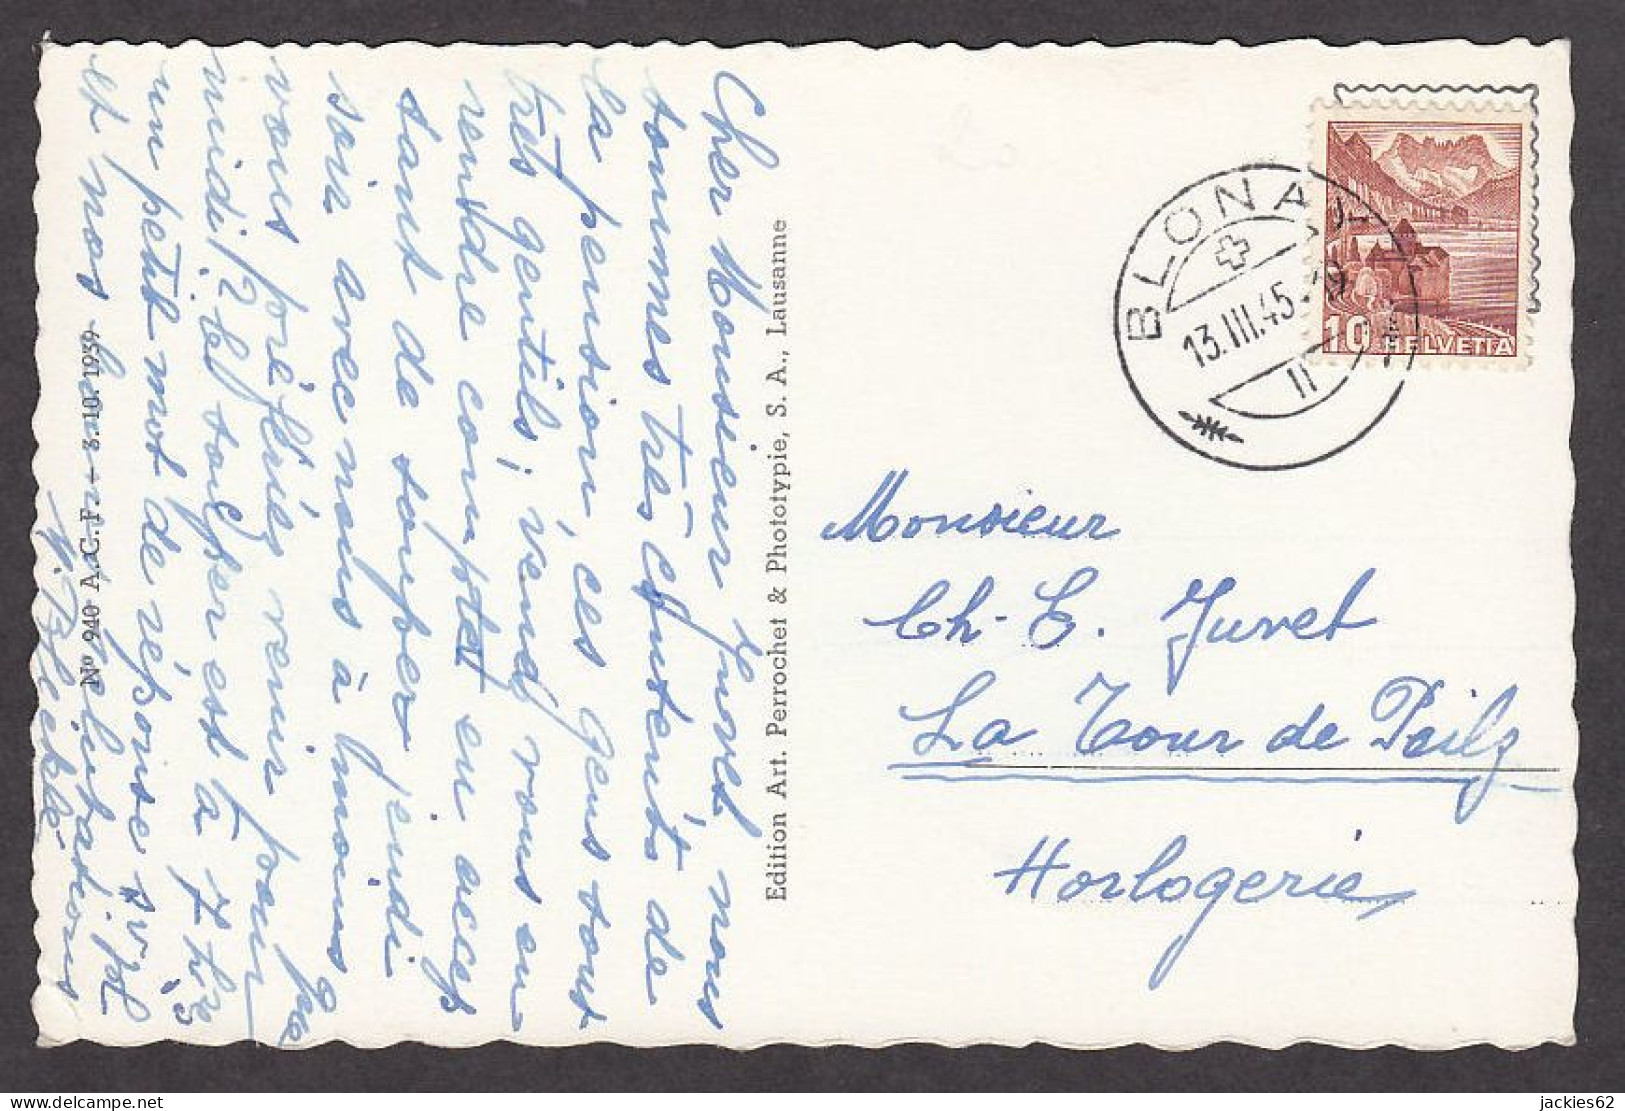 Cher Monsieur Juvet, nous
sommes très contents de
la pension, ces gens sont
très gentils; venez vous en
rendre comptes en accep
tant de souper jeudi
soir avec nous à moins que
vous préfériez venir pour
midi? Le souper est à 7 hrs
un petit mot de réponse s.v.pl
et nos salutations
No 940 A.C.F. - 3.10.1939
Edition Art. Perrochet & Phototypie, S. A., Lausanne
BLONAY
13.III.45
II
10 HELVETIA
Monsieur
Ch- E. Juvet
La Tour de Peilz
Horlogerie
jackies62